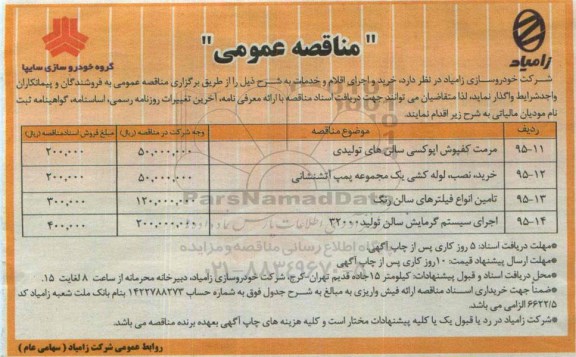 " مناقصه عمومی "
زامیاد
گروه خودرو سازی سایپا
شرکت خودروسازی زامیاد در نظر دارد، خرید و اجرای اقلام و خدمات به شرح ذیل را از طریق برگزاری مناقصه عمومی به فروشندگان و پیمانکاران
واجدشرایط واگذار نماید، لذا متقاضیان می توانند جهت دریافت اسناد مناقصه با ارائه معرفی نامه، آخرین تغییرات روزنامه رسمی، اساسنامه، گواهینامه ثبت
نام مودیان مالیاتی به شرح زیر اقدام نمایند.
ردیف موضوع مناقصه وجه شرکت در مناقصه (ریال) مبلغ فروش اسناد مناقصه (ریال)
۹۵-۱۱ مرمت کفپوش اپوکسی سالن های تولیدی ۵۰,۰۰۰,۰۰۰ ۲۰۰,۰۰۰
۹۵-۱۲ خرید، نصب، لوله کشی یک مجموعه پمپ آتشنشانی ۵۰,۰۰۰,۰۰۰ ۲۰۰,۰۰۰
۹۵-۱۳ تامین انواع فیلترهای سالن رنگ ۱۲۰,۰۰۰,۰۰۰ ۳۰۰,۰۰۰
۹۵-۱۴ اجرای سیستم گرمایش سالن تولید ۳۲۰۰۰ ۲۰۰,۰۰۰,۰۰۰ ۴۰۰,۰۰۰
ParsNamadData
پایگاه اطلاع رسانی مناقصه و مزایده
۰۲۱-۸۸۳۴۹۶۷۰
*مهلت دریافت اسناد: ۵ روز کاری پس از چاپ آگهی
*مهلت ارسال پیشنهاد قیمت: ۱۰ روز کاری پس از چاپ آگهی
*محل دریافت اسناد و قبول پیشنهادات: کیلومتر ۱۵ جاده قدیم تهران-کرج، شرکت خودروسازی زامیاد، دبیرخانه محرمانه از ساعت ۸ لغایت ۱۵.
*ضمناً جهت خریداری اسناد مناقصه ارائه فیش واریزی به مبالغ به شرح جدول فوق به شماره حساب ۱۴۲۲۷۸۸۲۷۳ بنام بانک ملت شعبه زامیاد کد
۶۶۲۲/۵ الزامی می باشد.
*شرکت زامیاد در رد یا قبول یک یا کلیه پیشنهادات مختار است و کلیه هزینه های چاپ آگهی بعهده برنده مناقصه می باشد.
روابط عمومی شرکت زامیاد ( سهامی عام )